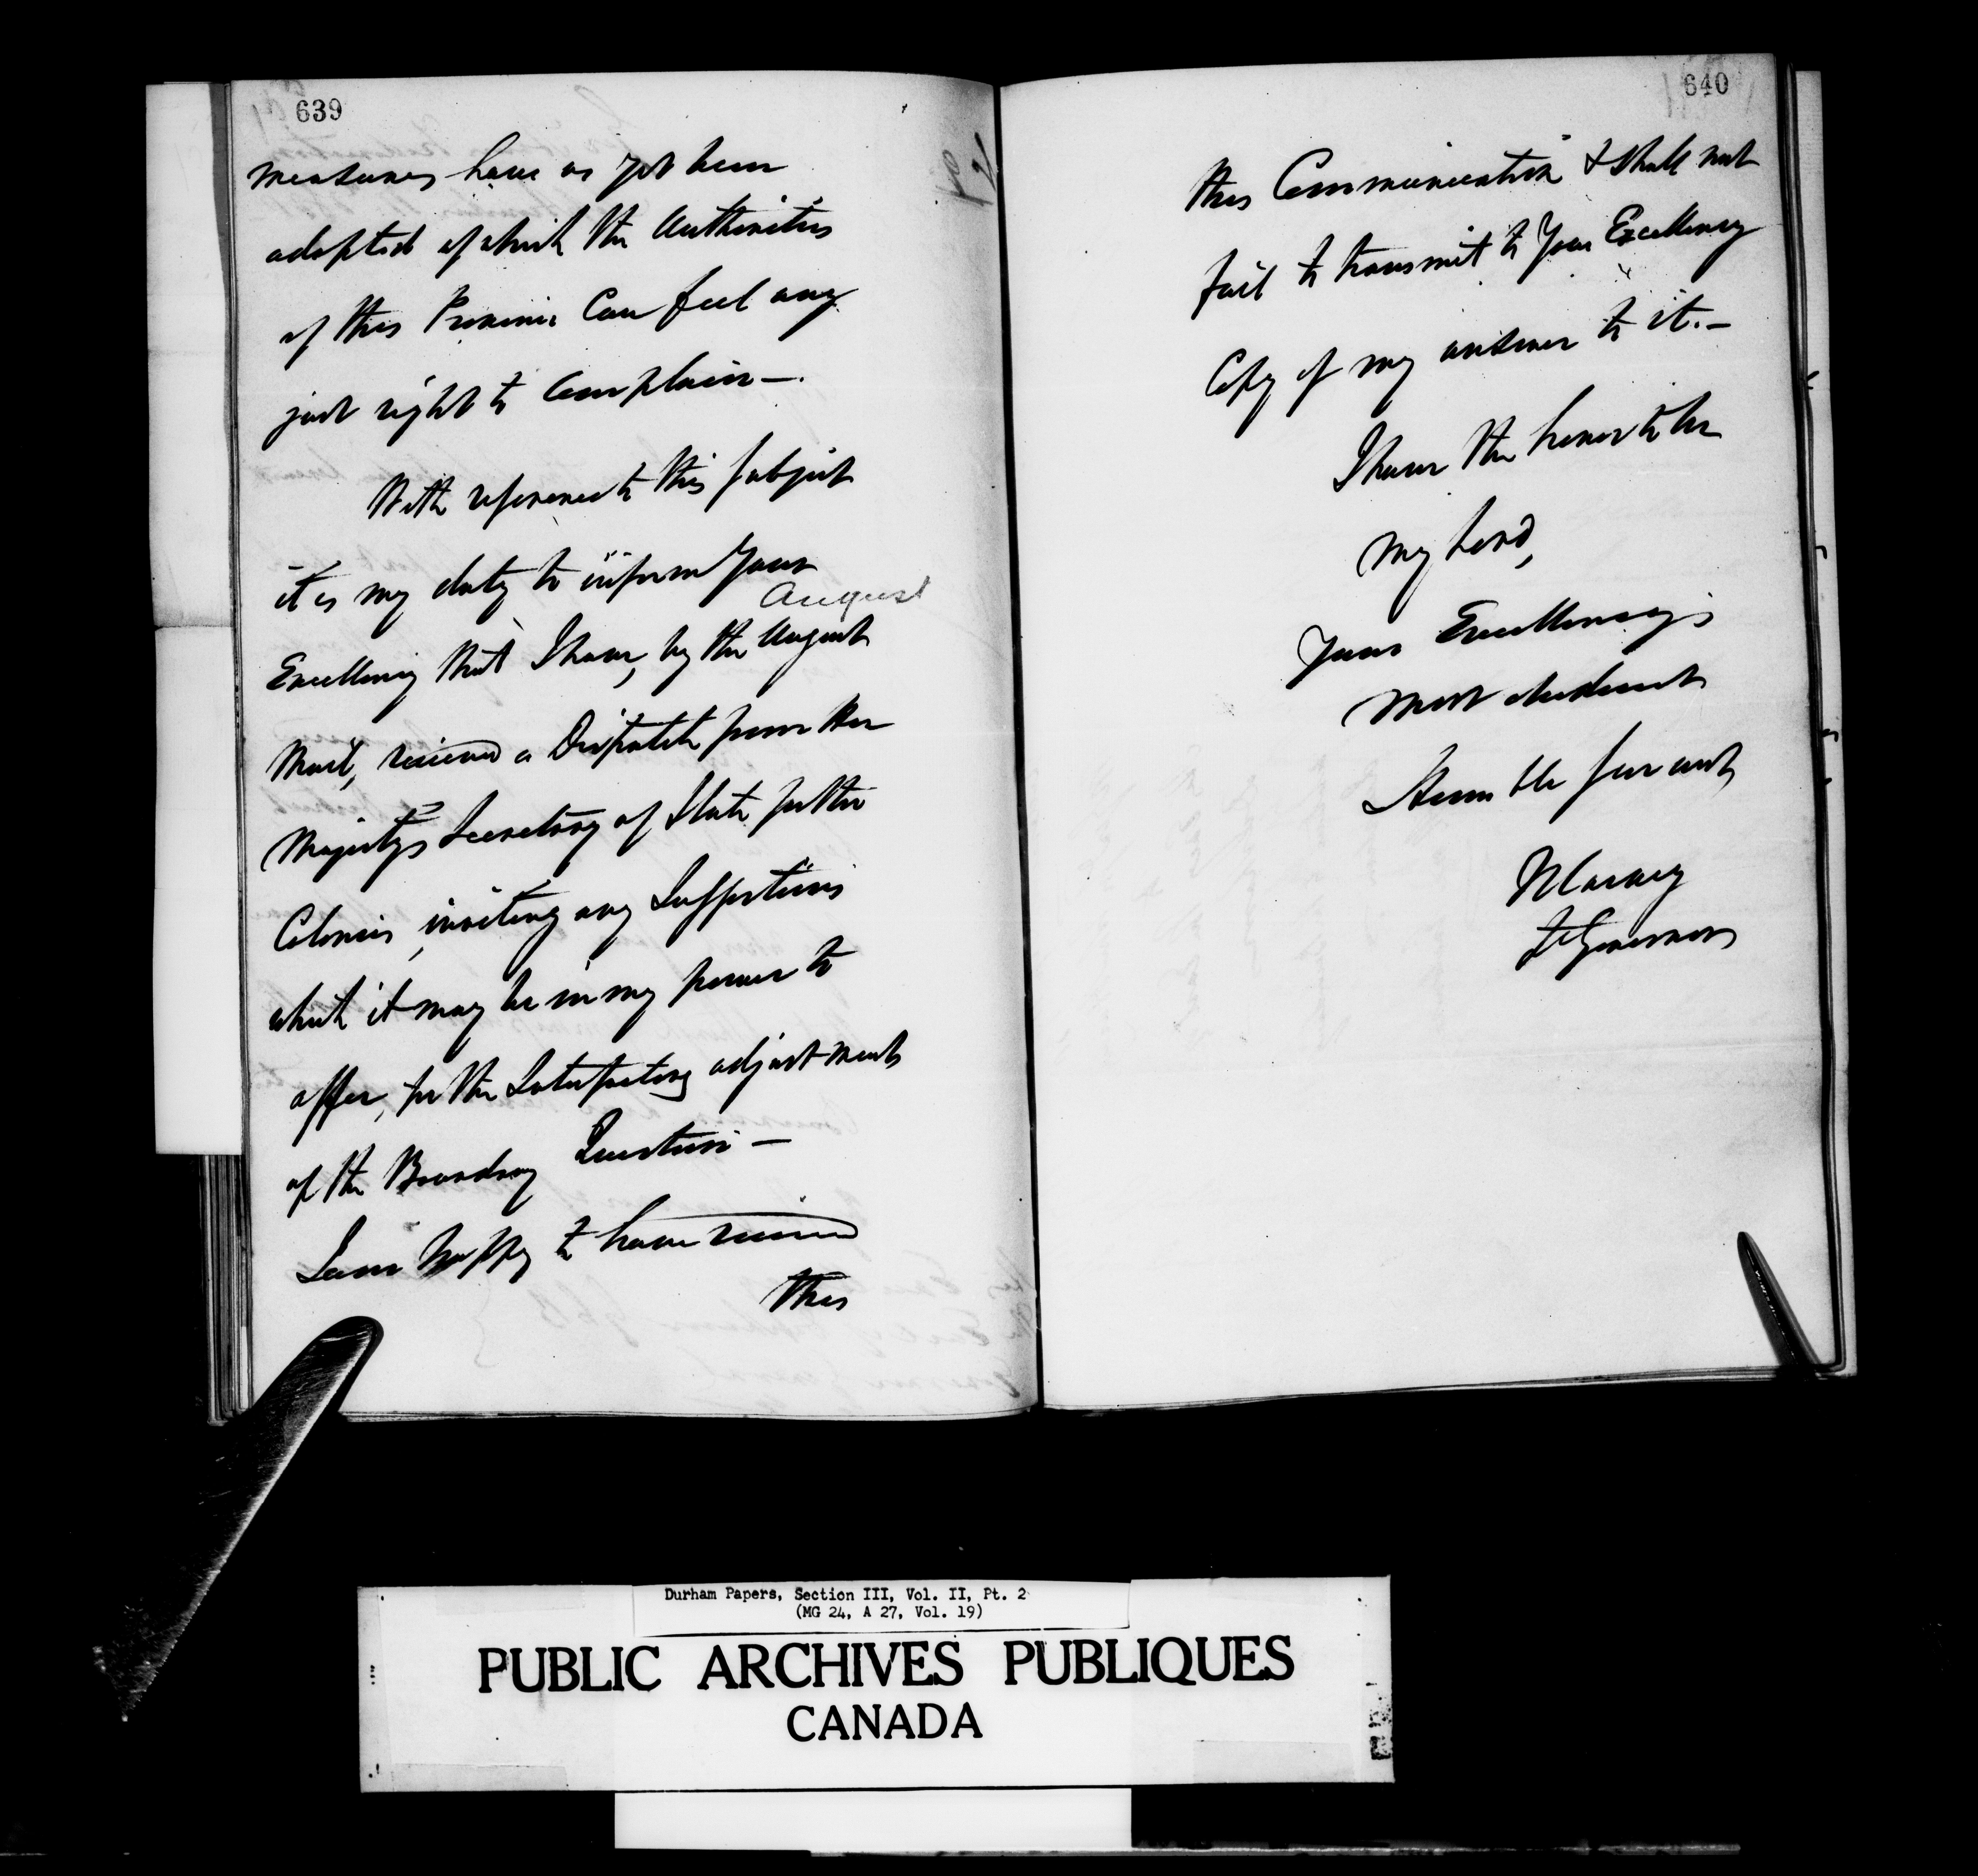 639
measures have as yet been
adopted of which the Authorities
of this Province Can feel any
just right to Complain —.
With reference to this subject
it is my duty to inform Your
August
Excellency that I have, by the August
Mail, received a Dispatch from Her
Majesty's Secretary of State for the
Colonies, inviting any Suggestions
which it may be in my power to
offer, for the Satisfactory adjustment
of the Boundary Question —
I am happy to have received
this
640
this Communication & shall not
fail to transmit to Your Excellency
Copy of my answer to it. —
I have the honor to be
My Lord,
Your Excellency's
Most obedient
Humble Servant
Harvey
Lt Governor
Durham Papers, Section III, Vol. II, Pt. 2
(MG 24, A 27, Vol. 19)
PUBLIC ARCHIVES PUBLIQUES
CANADA